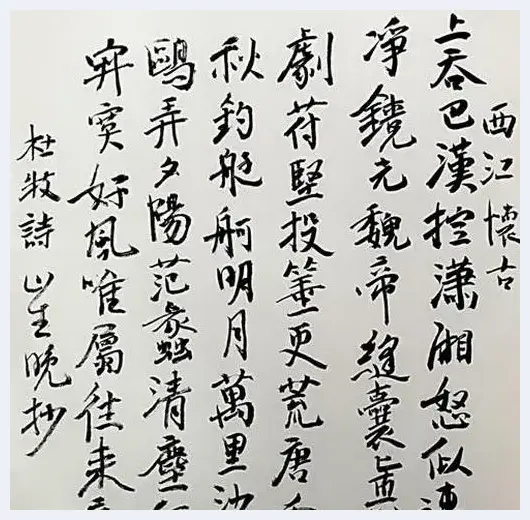 西江懷古
上吞巴漢控瀟湘怒似
凈鏡光魏帝縫囊真
劇苻堅投箠更荒唐
秋釣艇舸明月萬里沙
鷗弄夕陽范蠡清塵
寂寞好風唯屬往來
杜牧詩 山生晚抄